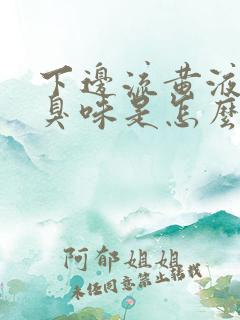 下邊流黃液
臭味是怎麼
阿郁姐姐
未经同意禁止转载